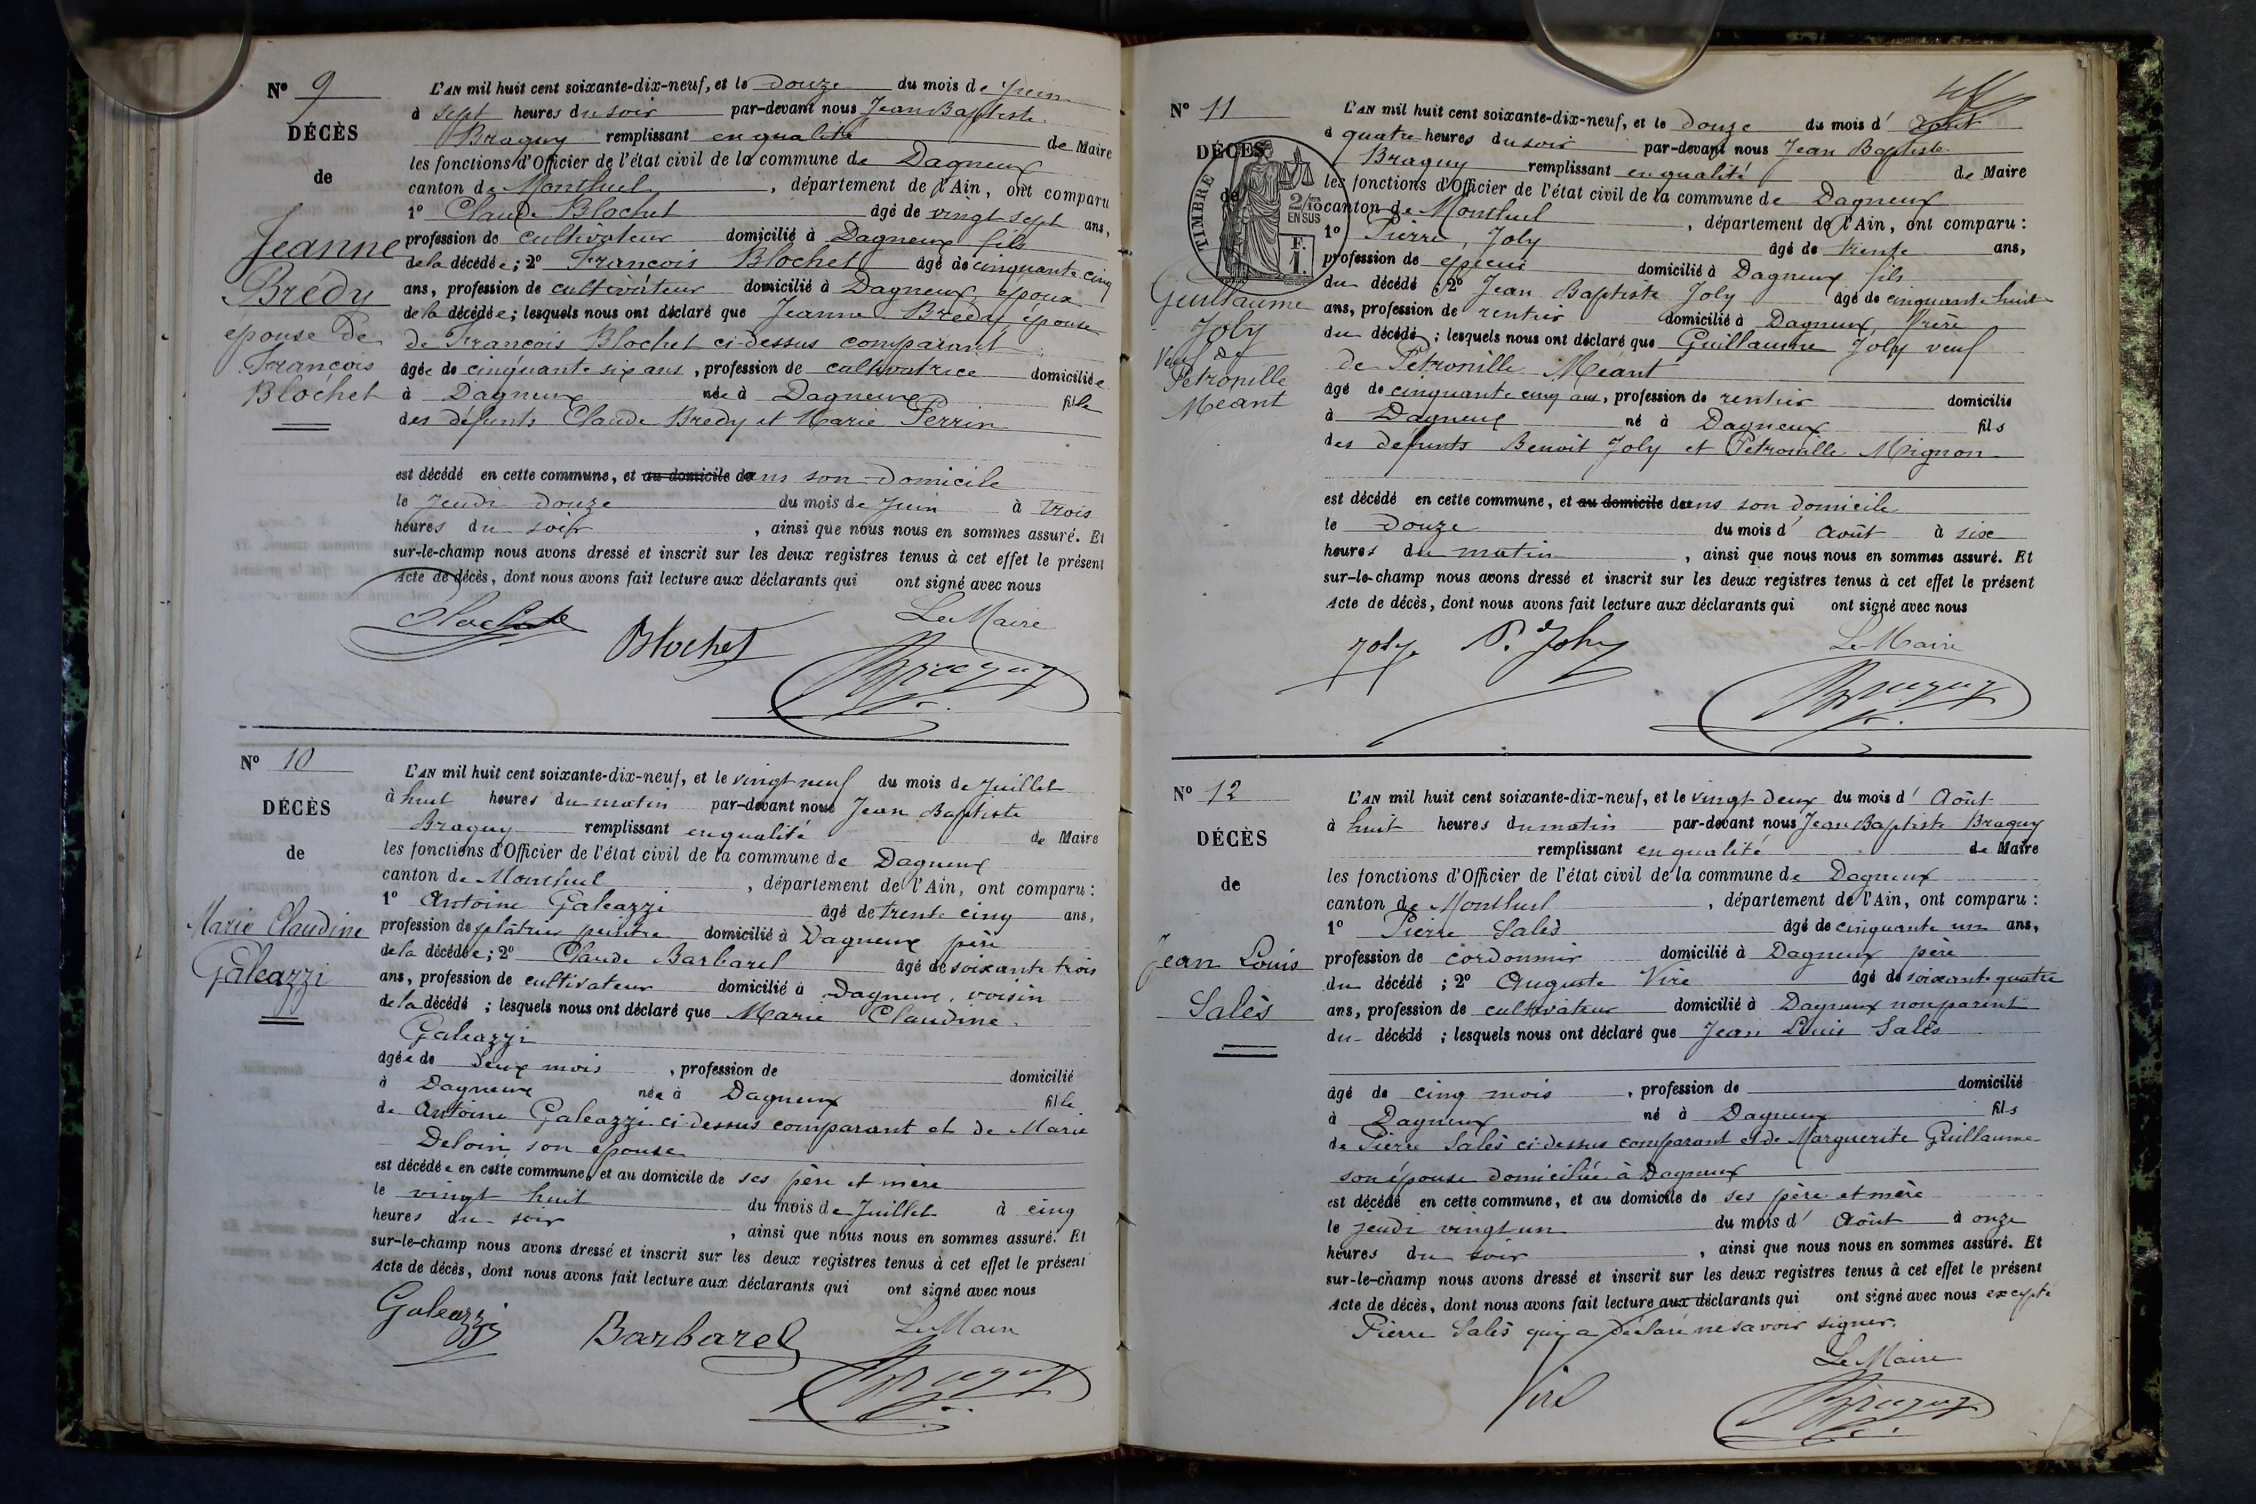 N° 9
DÉCÈS
de
Jeanne
Brédy
epouse De
François
Blochet
L'AN mil huit cent soixante-dix-neuf, et le Douze du mois de Juin
à sept heures du soir par-devant nous Jean Baptiste
Braguy remplissant en qualité de Maire
les fonctions d'Officier de l'état civil de la commune de Dagneux
canton de Montluel, département de l'Ain, ont comparu
1° Claude Blochet âgé de vingt sept ans,
profession de cultivateur domicilié à Dagneux fils
de la décédée; 2° François Blochet âgé de cinquante cinq
ans, profession de cultivateur domicilié à Dagneux, époux
de la décédée; lesquels nous ont déclaré que Jeanne Bredy, epouse
de François Blochet ci-dessus comparant
âgée de cinquante six ans, profession de cultivatrice domiciliée
à Dagneux née à Dagneux fille
des défunts Claude Bredy et Marie Perrin
est décédé en cette commune, et au domicile dans son domicile
le jeudi douze du mois de Juin à trois
heures du soir, ainsi que nous nous en sommes assuré. Et
sur-le-champ nous avons dressé et inscrit sur les deux registres tenus à cet effet le présent
Acte de décès, dont nous avons fait lecture aux déclarants qui ont signé avec nous
Le Maire
Blochet Blochet Braguy
N° 10
DÉCÈS
de
Marie Claudine
Galeazzi
L'AN mil huit cent soixante-dix-neuf, et le vingt neuf du mois de Juillet
à huit heures du matin par-devant nous Jean Baptiste
Braguy remplissant en qualité de Maire
les fonctions d'Officier de l'état civil de la commune de Dagneux
canton de Montluel, département de l'Ain, ont comparu :
1° Antoine Galeazzi âgé de trente cinq ans,
profession de plâtrier peintre domicilié à Dagneux père
de la décédée; 2° Claude Barbarel âgé de soixante trois
ans, profession de cultivateur domicilié à Dagneux, voisin
de la décédé ; lesquels nous ont déclaré que Marie Claudine
Galeazzi
âgée de deux mois, profession de domicilié
à Dagneux née à Dagneux fille
de Antoine Galeazzi ci-dessus comparant et de Marie
Deloin son epouse
est décédée en cette commune, et au domicile de ses père et mère
le vingt huit du mois de Juillet à cinq
heures du soir, ainsi que nous nous en sommes assuré. Et
sur-le-champ nous avons dressé et inscrit sur les deux registres tenus à cet effet le présent
Acte de décès, dont nous avons fait lecture aux déclarants qui ont signé avec nous
Le Maire
Galeazzi Barbarel Braguy
N° 11
DÉCÈS
de
TIMBRE
2/10
EN SUS
F.
1.
Guillaume
Joly
Veuf de
Petronille
Méant
L'AN mil huit cent soixante-dix-neuf, et le Douze du mois d' Août
à quatre heures du soir par-devant nous Jean Baptiste
Braguy remplissant en qualité de Maire
les fonctions d'Officier de l'état civil de la commune de Dagneux
canton de Montluel, département de l'Ain, ont comparu :
1° Pierre, Joly âgé de trente ans,
profession de epicier domicilié à Dagneux fils
du décédé ; 2° Jean Baptiste Joly âgé de cinquante huit
ans, profession de rentier domicilié à Dagneux, frère
du décédé ; lesquels nous ont déclaré que Guillaume Joly veuf
de Petronille Méant
âgé de cinquante cinq ans, profession de rentier domicilié
à Dagneux né à Dagneux fils
des défunts Benoît Joly et Petronille Mignon
est décédé en cette commune, et au domicile dans son domicile
le Douze du mois d' Août à six
heures du matin, ainsi que nous nous en sommes assuré. Et
sur-le-champ nous avons dressé et inscrit sur les deux registres tenus à cet effet le présent
Acte de décès, dont nous avons fait lecture aux déclarants qui ont signé avec nous
Le Maire
Joly P. Joly Braguy
N° 12
DÉCÈS
de
Jean Louis
Salès
L'AN mil huit cent soixante-dix-neuf, et le vingt deux du mois d' Août
à huit heures du matin par-devant nous Jean Baptiste Braguy
remplissant en qualité de Maire
les fonctions d'Officier de l'état civil de la commune de Dagneux
canton de Montluel, département de l'Ain, ont comparu :
1° Pierre Salès âgé de cinquante un ans,
profession de cordonnier domicilié à Dagneux père
du décédé ; 2° Auguste Viré âgé de soixante quatre
ans, profession de cultivateur domicilié à Dagneux non parent
du décédé ; lesquels nous ont déclaré que Jean Louis Salès
âgé de cinq mois, profession de domicilié
à Dagneux né à Dagneux fils
de Pierre Salès ci-dessus comparant et de Marguerite Guillaume
son épouse domiciliée à Dagneux
est décédé en cette commune, et au domicile de ses père et mère
le jeudi vingt un du mois d' Août à onze
heures du soir, ainsi que nous nous en sommes assuré. Et
sur-le-champ nous avons dressé et inscrit sur les deux registres tenus à cet effet le présent
Acte de décès, dont nous avons fait lecture aux déclarants qui ont signé avec nous excepté
Pierre Salès qui a déclaré ne savoir signer.
Le Maire
Viré Braguy